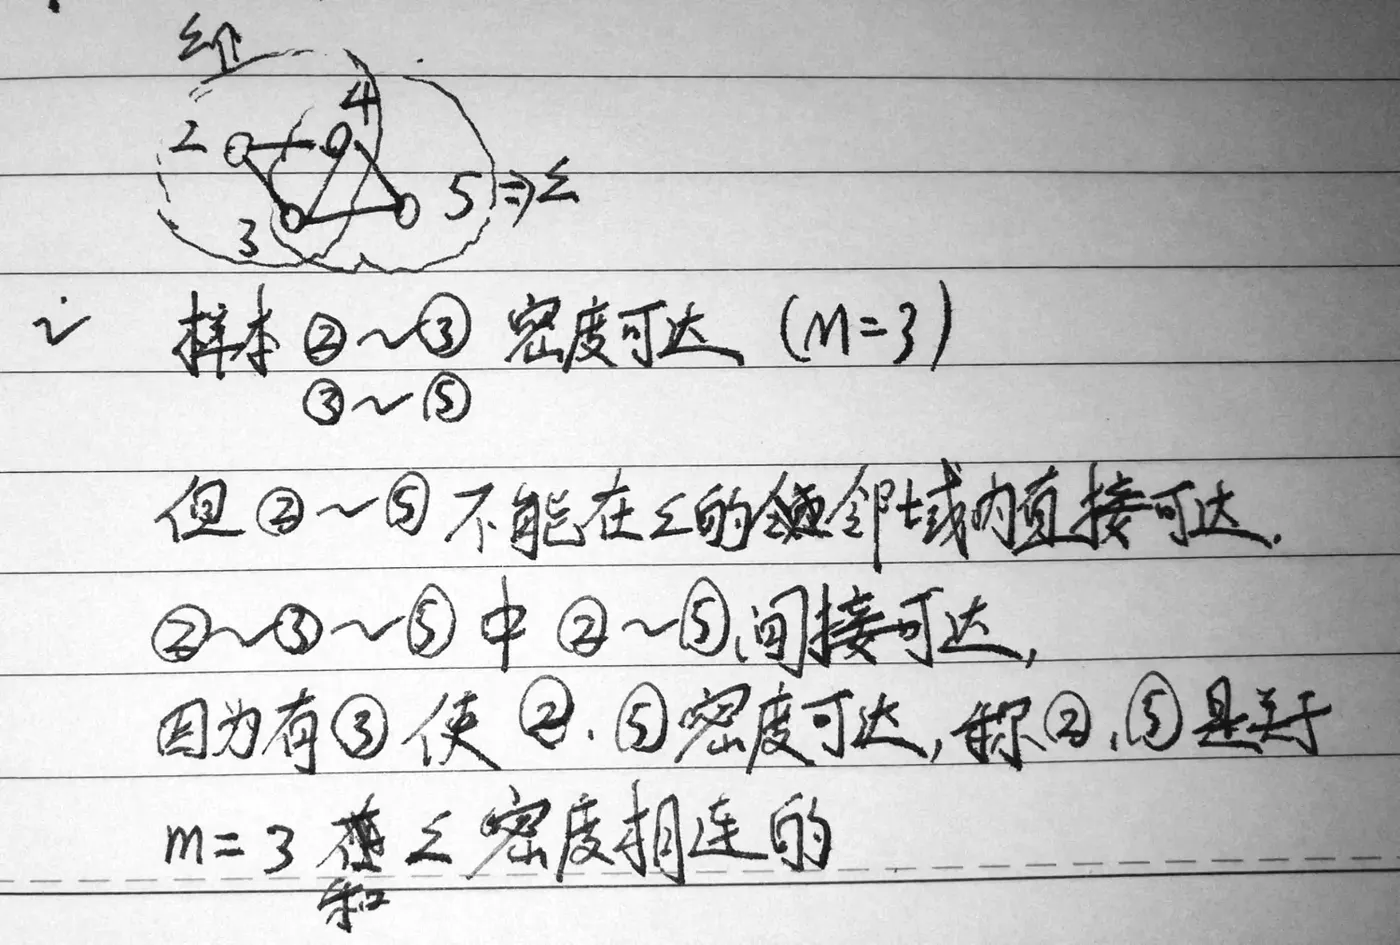 2
4
3
5 => ε
i 样本②~③密度可达(M=3)
③~⑤
但②~⑤不能在ε的邻域内直接可达.
②~③~⑤中②~⑤间接可达,
因为有③使②、⑤密度可达,称②、⑤是关于
m=3 ε密度相连的
和